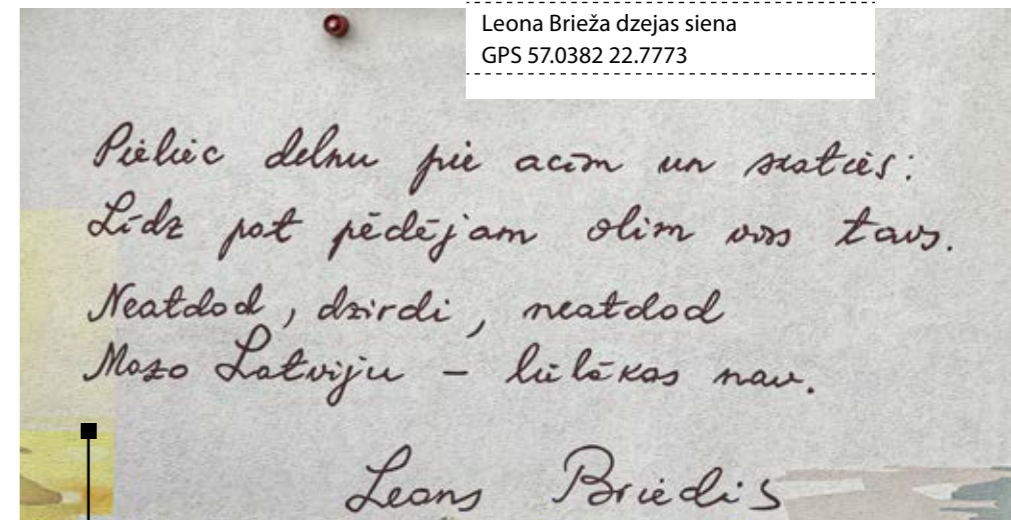 Leona Brieža dzejas siena
GPS 57.0382 22.7773
Pieliec delnu pie acīm un skaties:
Līdz pat pēdējam olim viss tavs.
Neatdod, dzirdi, neatdod
Mazo Latviju – lielākas nav.
Leons Briedis